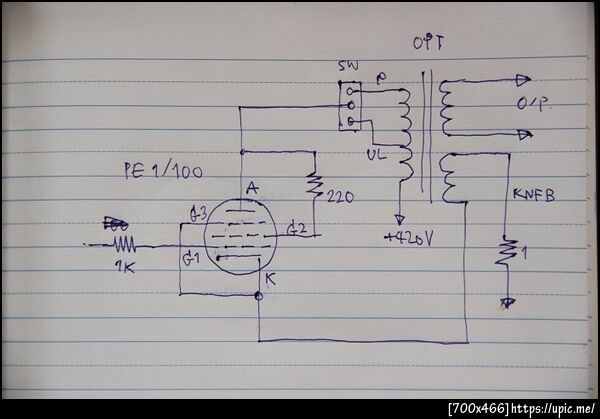 OPT
SW
P
O/P.
UL
PE 1/100
A
220
KNFB
G3
G2
+420V
1
1K
G1
K
[700x466]https://upic.me/